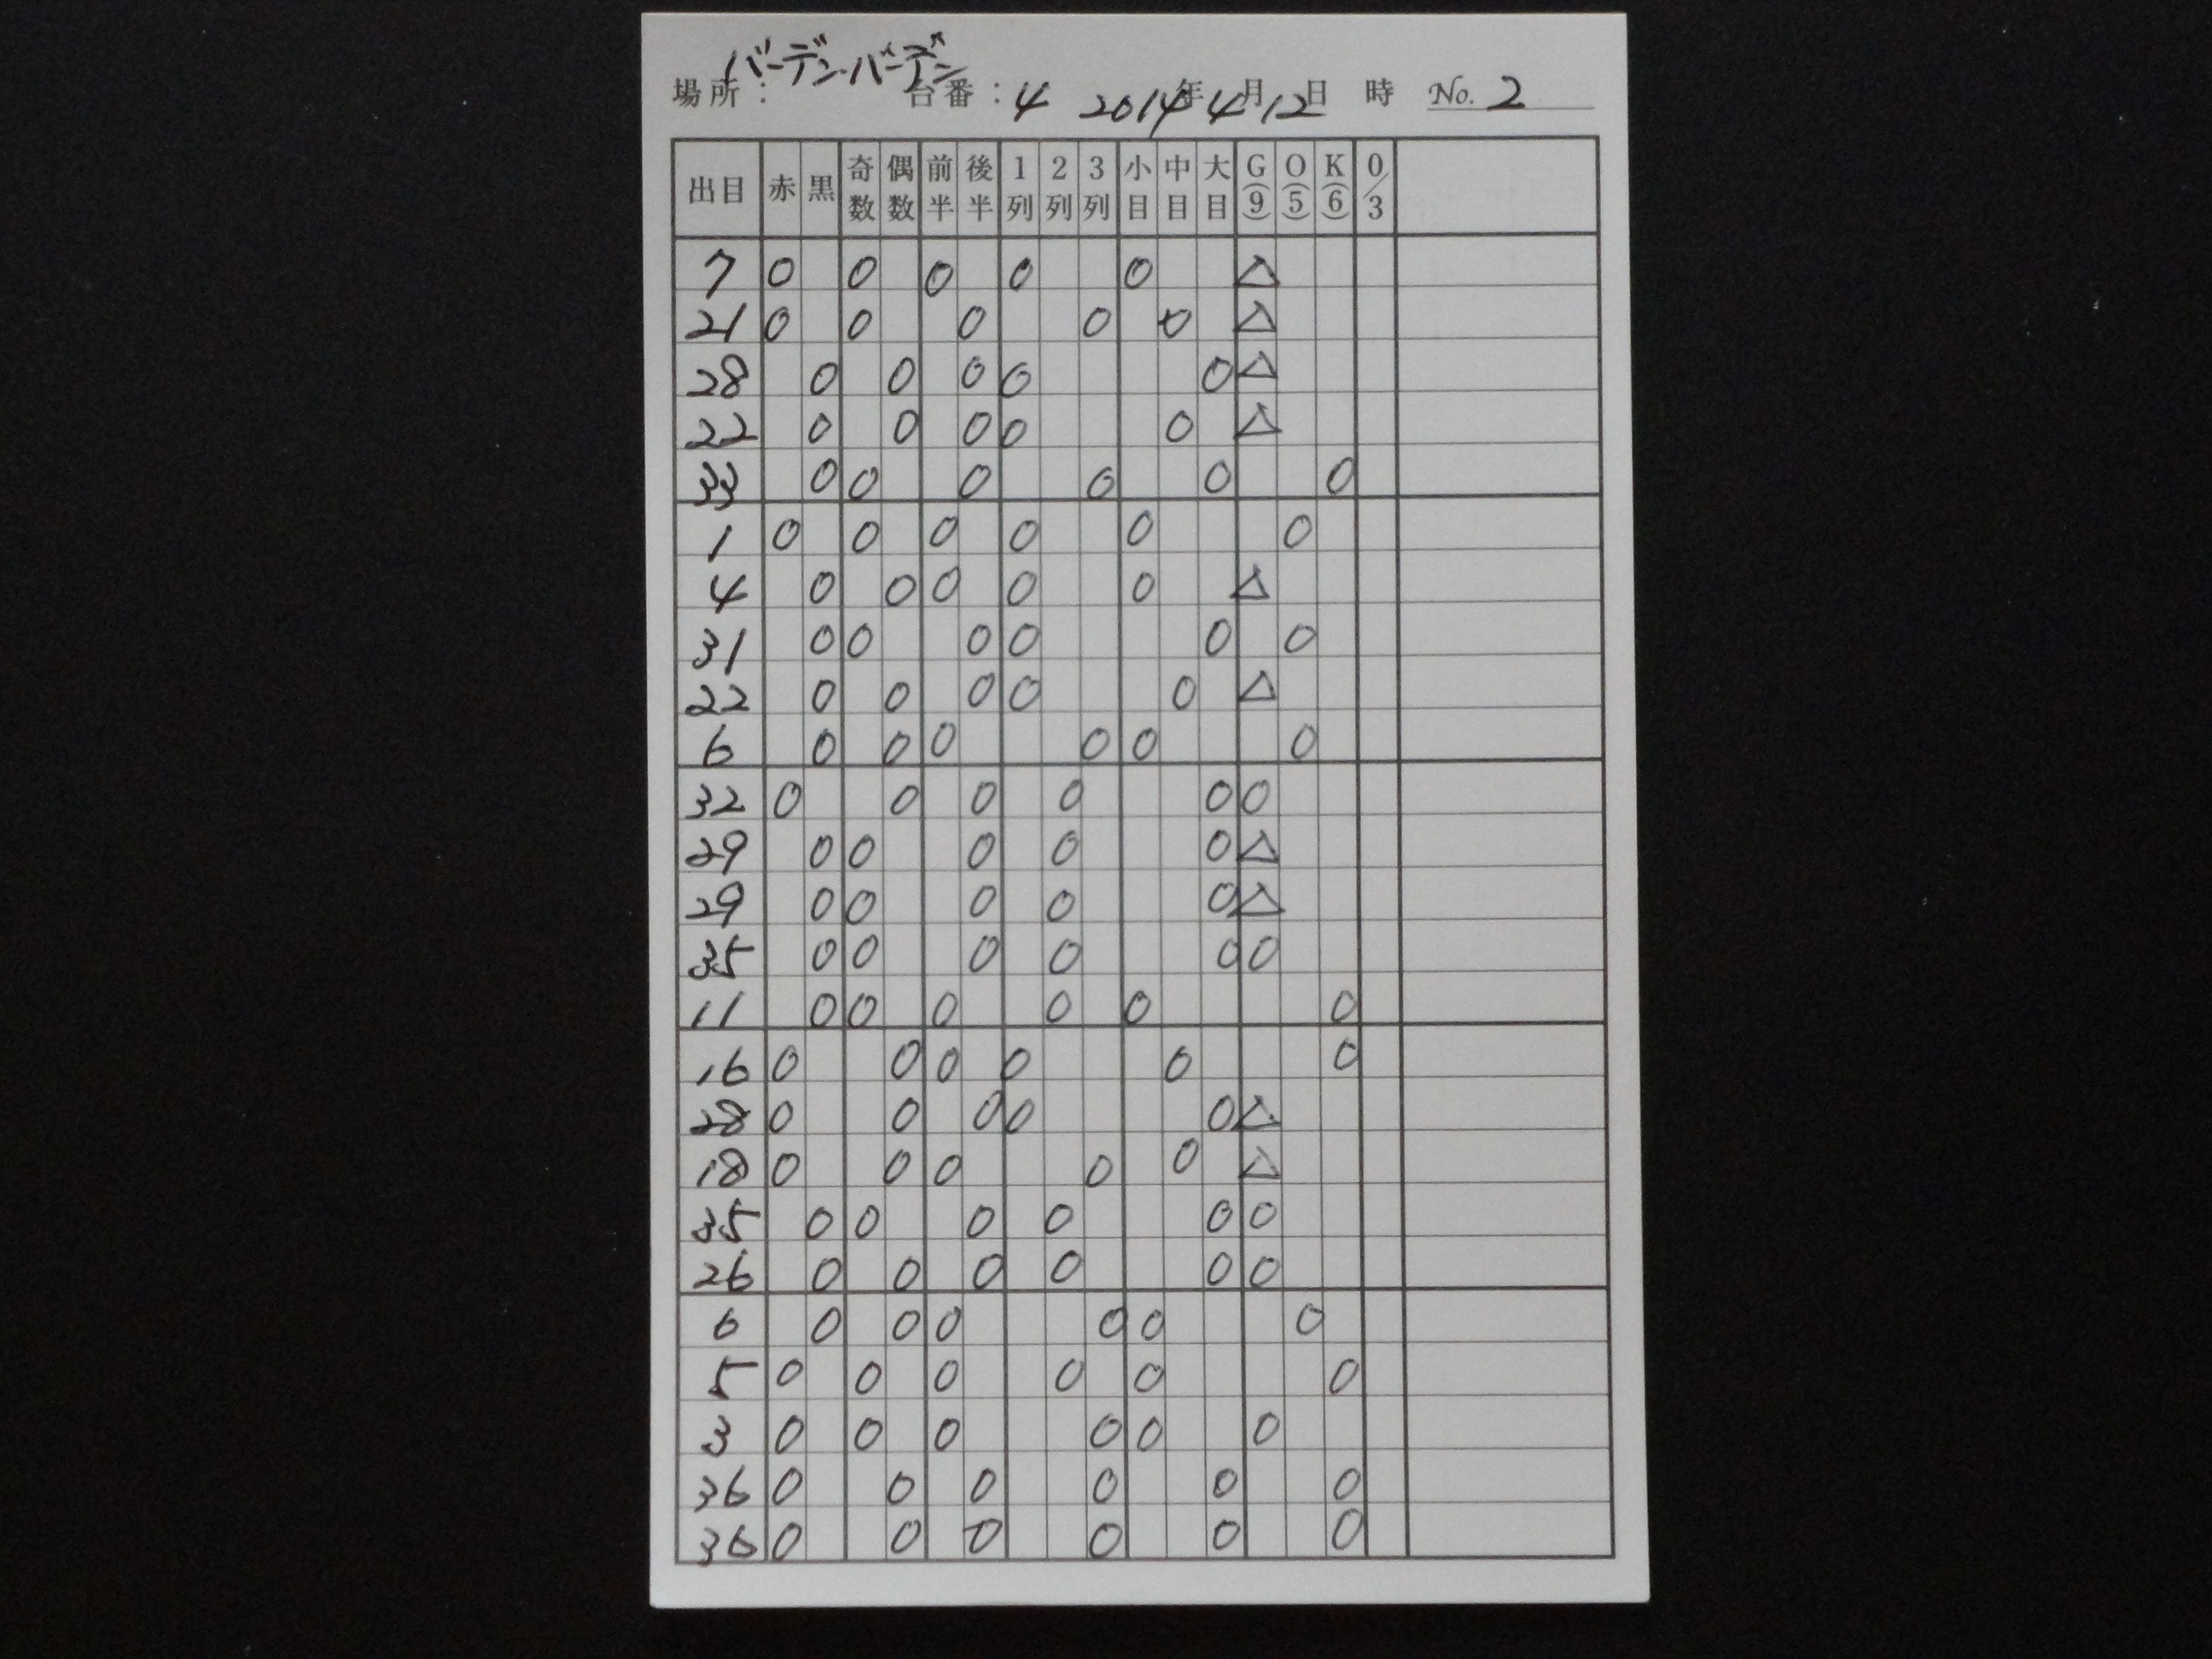 バーデン・バーデン
場所： 台番：4 2014年4月12日 時 No. 2
出目 赤 黒 奇数 偶数 前半 後半 1列 2列 3列 小目 中目 大目 G(9) O(5) K(6) 0/3
7 0 0 0 0 0 △
21 0 0 0 0 0 △
28 0 0 0 0 0 △
22 0 0 0 0 0 △
33 0 0 0 0 0 0
1 0 0 0 0 0 0
4 0 0 0 0 0 △
31 0 0 0 0 0 0
22 0 0 0 0 0 △
6 0 0 0 0 0 0
32 0 0 0 0 0 0
29 0 0 0 0 0 △
29 0 0 0 0 0 △
35 0 0 0 0 0 0
11 0 0 0 0 0 0
16 0 0 0 0 0 0
28 0 0 0 0 0 △
18 0 0 0 0 0 △
35 0 0 0 0 0 0
26 0 0 0 0 0 0
6 0 0 0 0 0 0
5 0 0 0 0 0 0
3 0 0 0 0 0 0
36 0 0 0 0 0 0
36 0 0 0 0 0 0